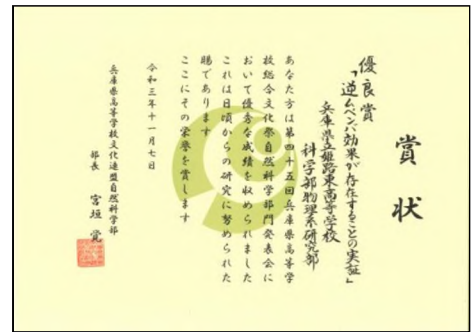 賞状
優良賞
「逆ムペンバ効果が存在することの実証」
兵庫県立姫路東高等学校
科学部物理系研究部
あなた方は第四十五回兵庫県高等学
校総合文化祭自然科学部門発表会に
おいて優秀な成績を収められました
これは日頃からの研究に努められた
賜であります
ここにその栄誉を賞します
令和三年十一月七日
兵庫県高等学校文化連盟自然科学部
部長 宮垣 覚